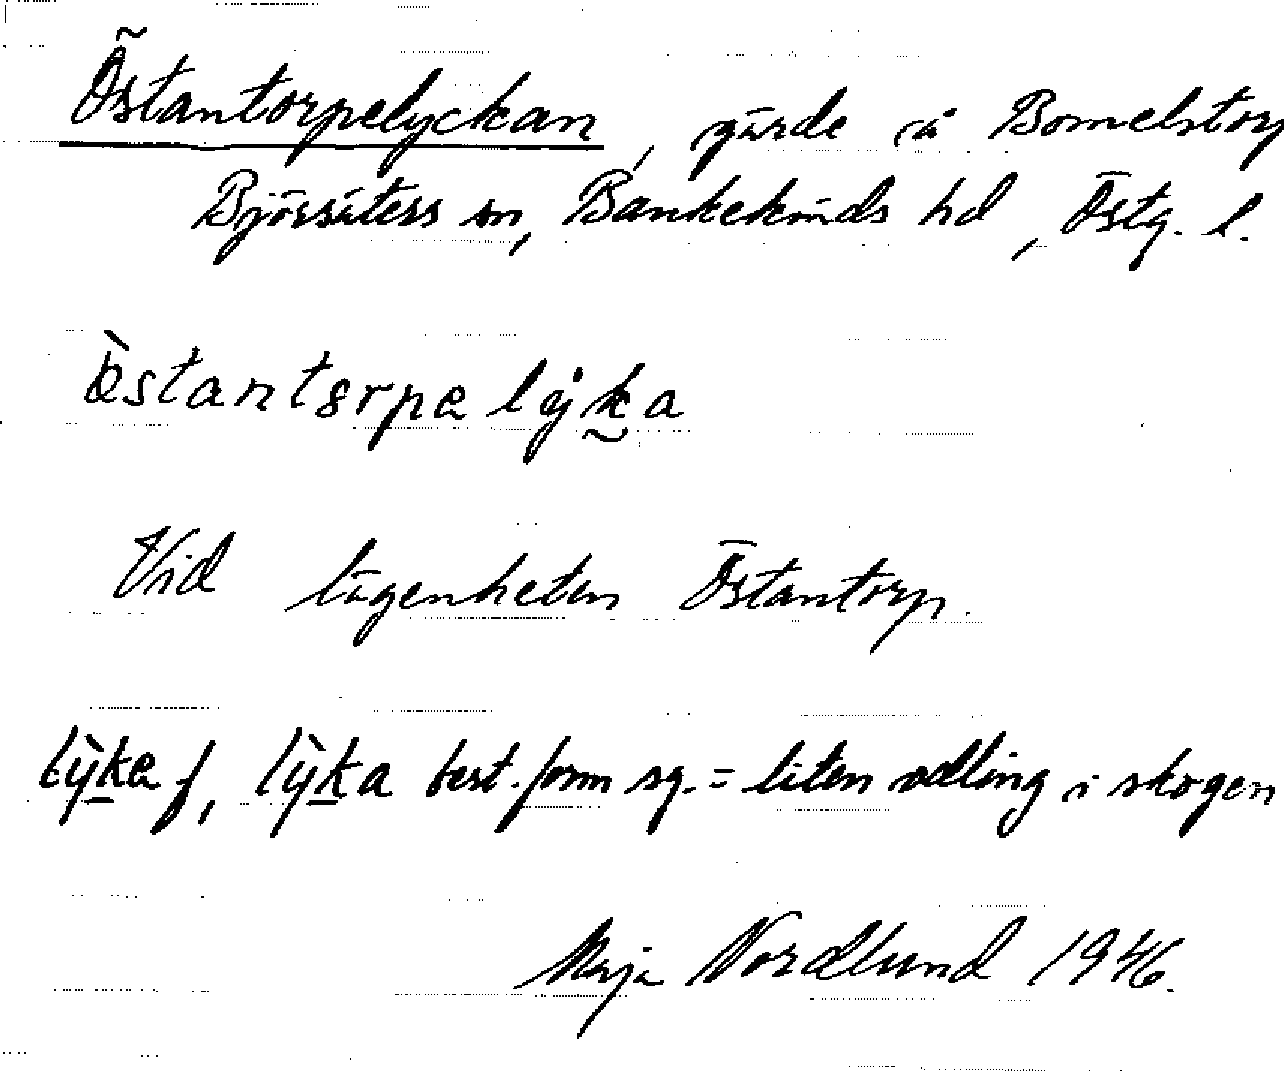 Östantorpelyckan, gärde å Bomelstorp
Björsäters sn, Bankekinds hd, Östg. l.
östantorpe lyka
Vid lägenheten Östantorp.
lỳke f, lỳka best. form sg. = liten odling i skogen
Maja Nordlund 1946.